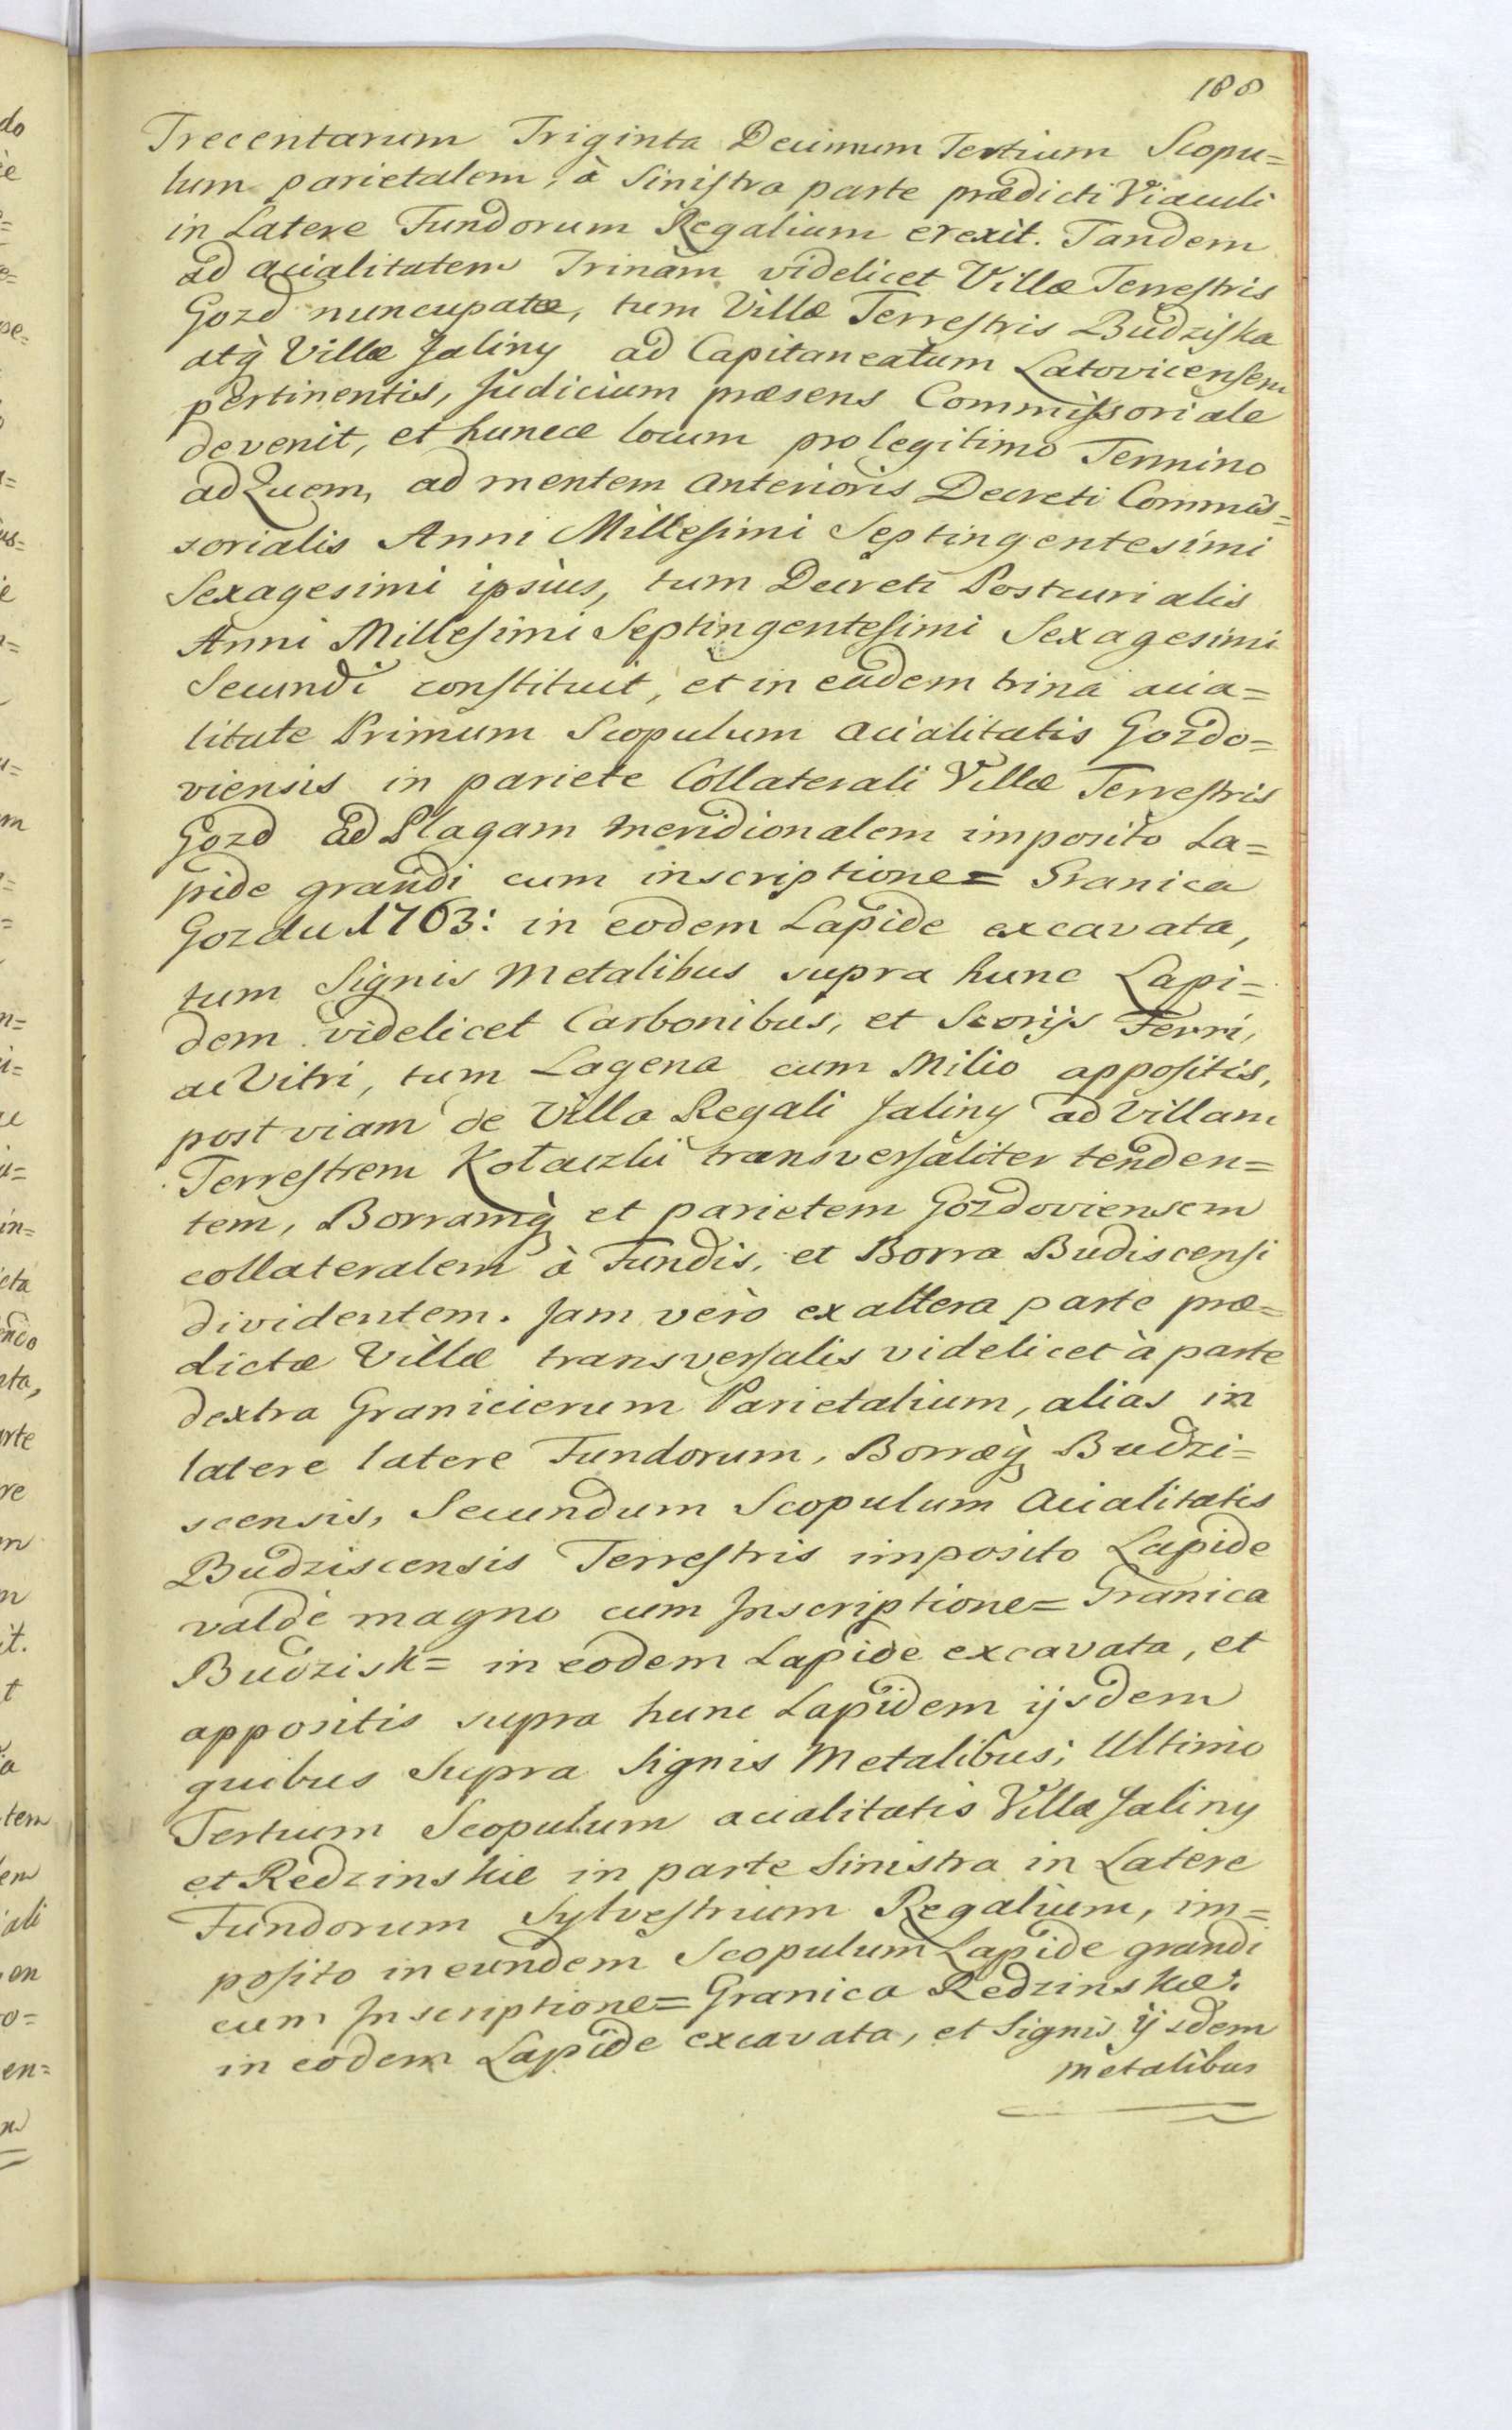 188
Trecentarum Triginta Decimum Tertium Scopu=
lum parietalem, à Sinistra parte prædicti Viaculi
in Latere Fundorum Regalium erexit. Tandem
ad acialitatem Trinam videlicet Villæ Terrestris
Gozd nuncupatæ, tum Villæ Terrestris Budziska
atq̀ Villæ Jaliny ad Capitaneatum Latovicensem
pertinentis, Judicium præsens Commissoriale
devenit, et huncce locum pro legitimo Termino
ad Quem, ad mentem anterioris Decreti Commis=
sorialis Anni Millesimi Septingentesimi
Sexagesimi ipsius, tum Decreti Postcurialis
Anni Millesimi Septingentesimi Sexagesimi
Secundi constituit, et in eadem trina acia=
litate Primum Scopulum acialitatis Gozdo=
viensis in pariete Collaterali Villæ Terrestris
Gozd ad Plagam meridionalem imposito La=
pide grandi cum inscriptione= Granica
Gozdu 1763: in eodem Lapide excavata,
tum Signis metalibus supra hunc Lapi=
dem videlicet Carbonibus, et Scorijs Ferri,
ac Vitri, tum Lagena cum Milio appositis,
post viam de Villa Regali Jaliny ad Villam
Terrestrem Kołaczki transversaliter tenden=
tem, Borramq̀ et parietem Gozdoviensem
collateralem à Fundis, et Borra Budiscensi
dividentem. Jam verò ex altera parte præ=
dictæ Villæ transversalis videlicet à parte
dextra Granicierum Parietalium, alias in
latere latere Fundorum, Borræq̀ Budzi=
scensis, Secundum Scopulum acialitatis
Budziscensis Terrestris imposito Lapide
valdè magno cum Inscriptione= Granica
Budzisk= in eodem Lapide excavata, et
appositis supra hunc Lapidem ijsdem
quibus supra Signis Metalibus; Ultimo
Tertium Scopulum acialitatis Villæ Jaliny
et Redzinskie in parte Sinistra in Latere
Fundorum Sylvestrium Regalium, im=
posito in eundem Scopulum Lapide grandi
cum Inscriptione= Granica Redzinskie:
in eodem Lapide excavata, et Signis ijsdem
metalibus